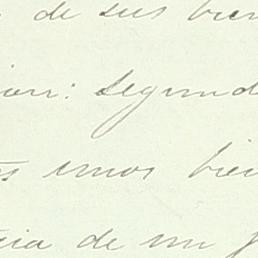 de sus bien
ion: Segund
unos bien
cia de un